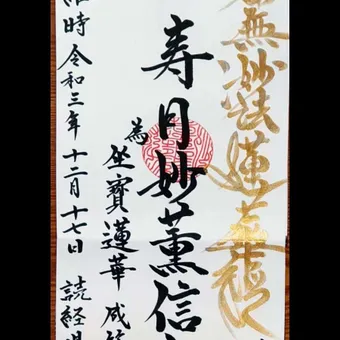 無妙法蓮華経
寿月妙薫信
為
坐寳蓮華成
維時令和三年十二月十七日読経